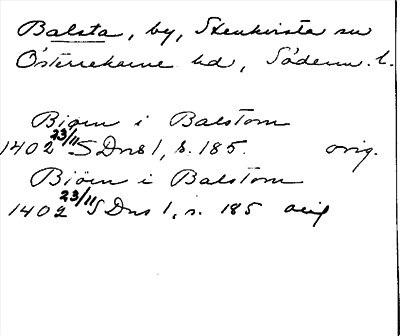 Balsta, by, Stenkvista sn
Österrekarne hd, Söderm. l.
Biörn i Balstom
1402 23/11 SDns 1, s. 185. orig.
Biörn i Balstom
1402 23/11 SDns 1, s. 185 orig